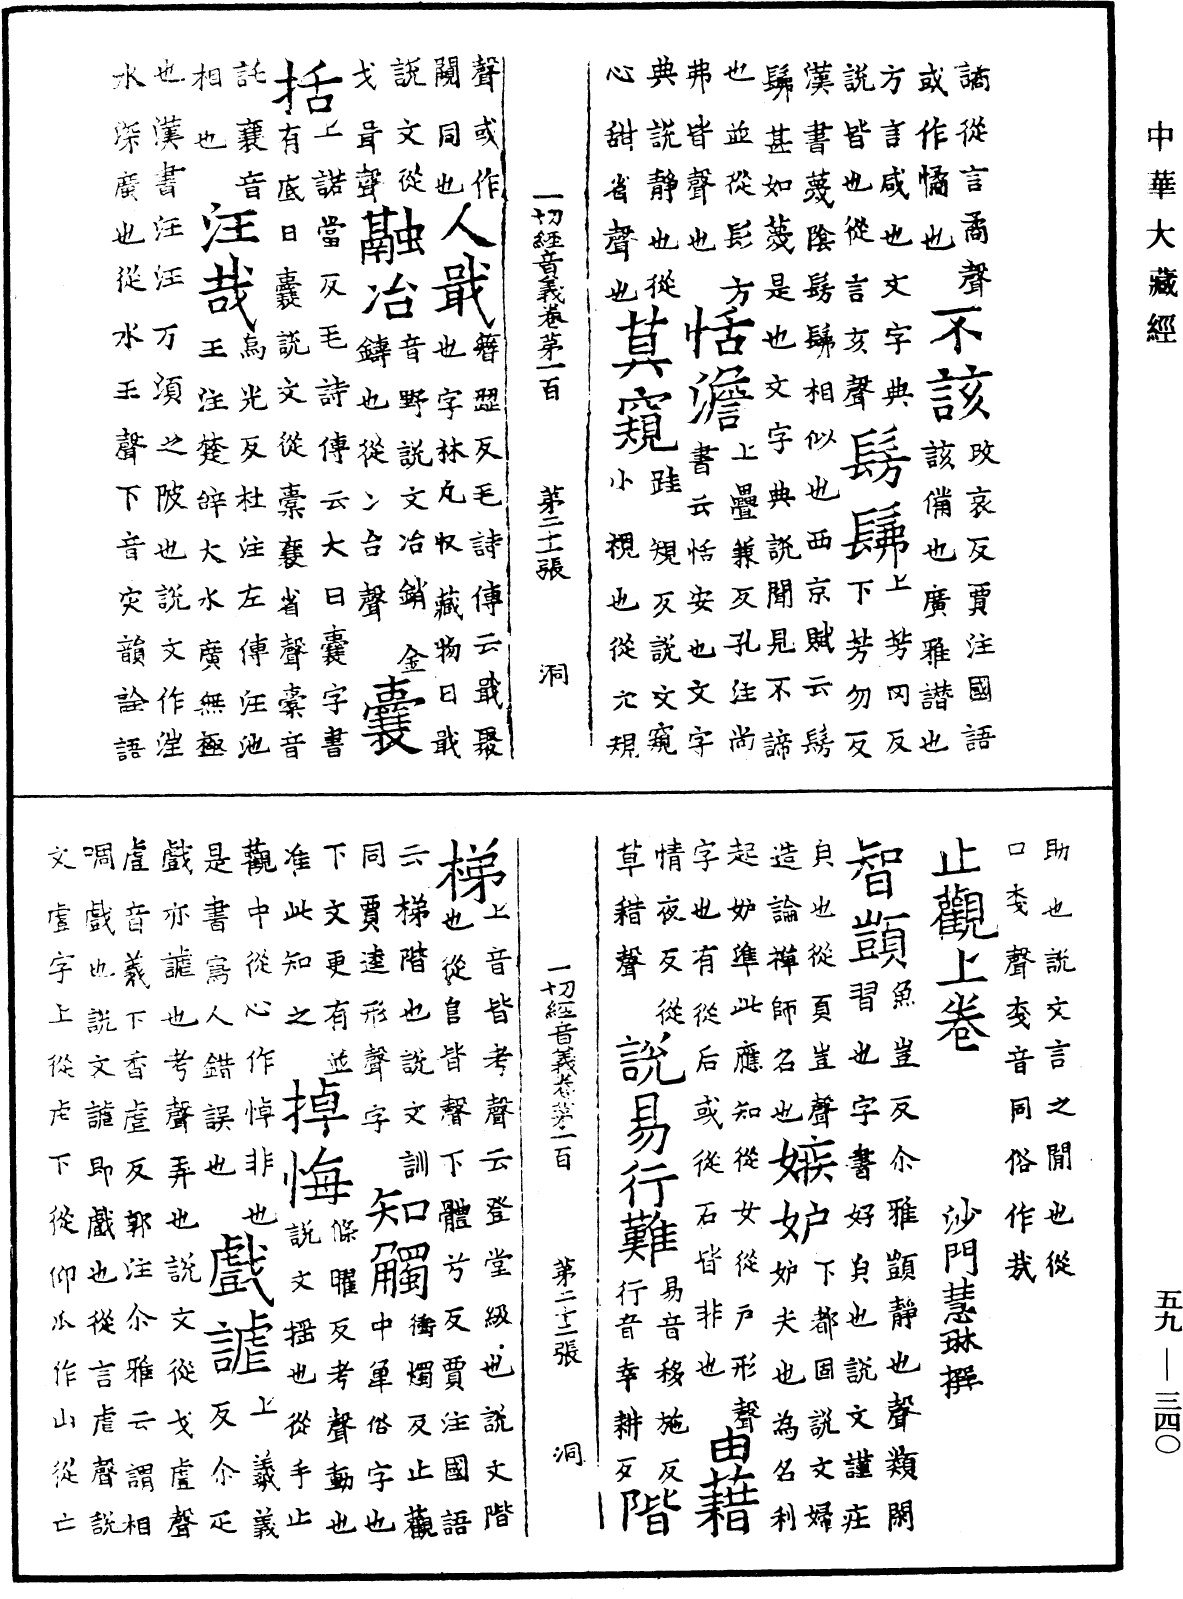 中華大藏經
譎從言矞聲不該改哀反賈注國語
或作憰也該備也廣雅譖也
方言咸也文字典
說皆也從言亥聲髣髴上芳冈反下芳勿反
漢書薎陰髣髴相似也西京賦云髣
髴甚如薎是也文字典說聞見不諦
也並從髟方弗皆聲也恬澹上疊兼反孔注尚
書云恬安也文字
典說靜也從心甜省聲也莫窺跬規反說文窺
小視也從穴規
一切經音義卷第一百 第二十一張 洞
聲或作䦧同也人戢簪澀反毛詩傳云戢聚
也字林丸收藏物曰戢
說文從戈咠聲融冶音野說文冶銷金
鑄也從冫台聲囊
括上諾當反毛詩傳云大曰囊字書
有底曰囊說文從㯻襄省聲㯻音
託襄音相也汪哉烏光反杜注左傳汪池
也王注楚辭大水廣無極
也漢書汪汪万頃之陂也說文作㳹
水深廣也從水王聲下音灾韻詮語
助也說文言之閒也從
口𢦏聲𢦏音同俗作㦲
止觀上卷 沙門慧琳撰
智顗魚豈反尒雅顗靜也聲類閑
習也字書好皃也說文謹莊
皃也從頁豈聲嫉妒下都固說文婦
造論禪師名也妒夫也為名利
起妒準此應知從女從戶形聲
字也有從后或從石皆非也由藉
情夜反從草耤聲說易行難易音移施反
行音幸耕反階
梯上音皆考聲云登堂級也說文階
也從𨸏皆聲下體兮反賈注國語
云梯階也說文訓同賈逵形聲字知觸衝燭反止觀
中單俗字也
下文更有並准此知之掉悔條曜反考聲動也
說文搖也從手止
觀中從心作悼非也
是書寫人錯誤也戲謔上羲義
反尒疋
戲亦謔也考聲弄也說文從戈䖒聲
䖒音羲下香虐反郭注尒雅云謂相
啁戲也說文謔即戲也從言虐聲說
文虐字上從虍下從仰爪作山從亡
一切經音義卷第一百 第二十二張 洞
五九—三四〇